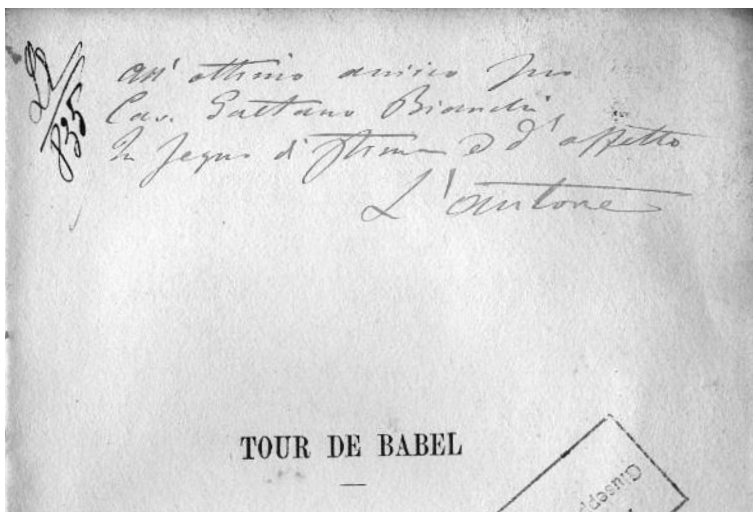 all' ottimo amico suo
Cav. Gaetano Bianchi
In segno di stima e d' affetto
L' autore
835
TOUR DE BABEL